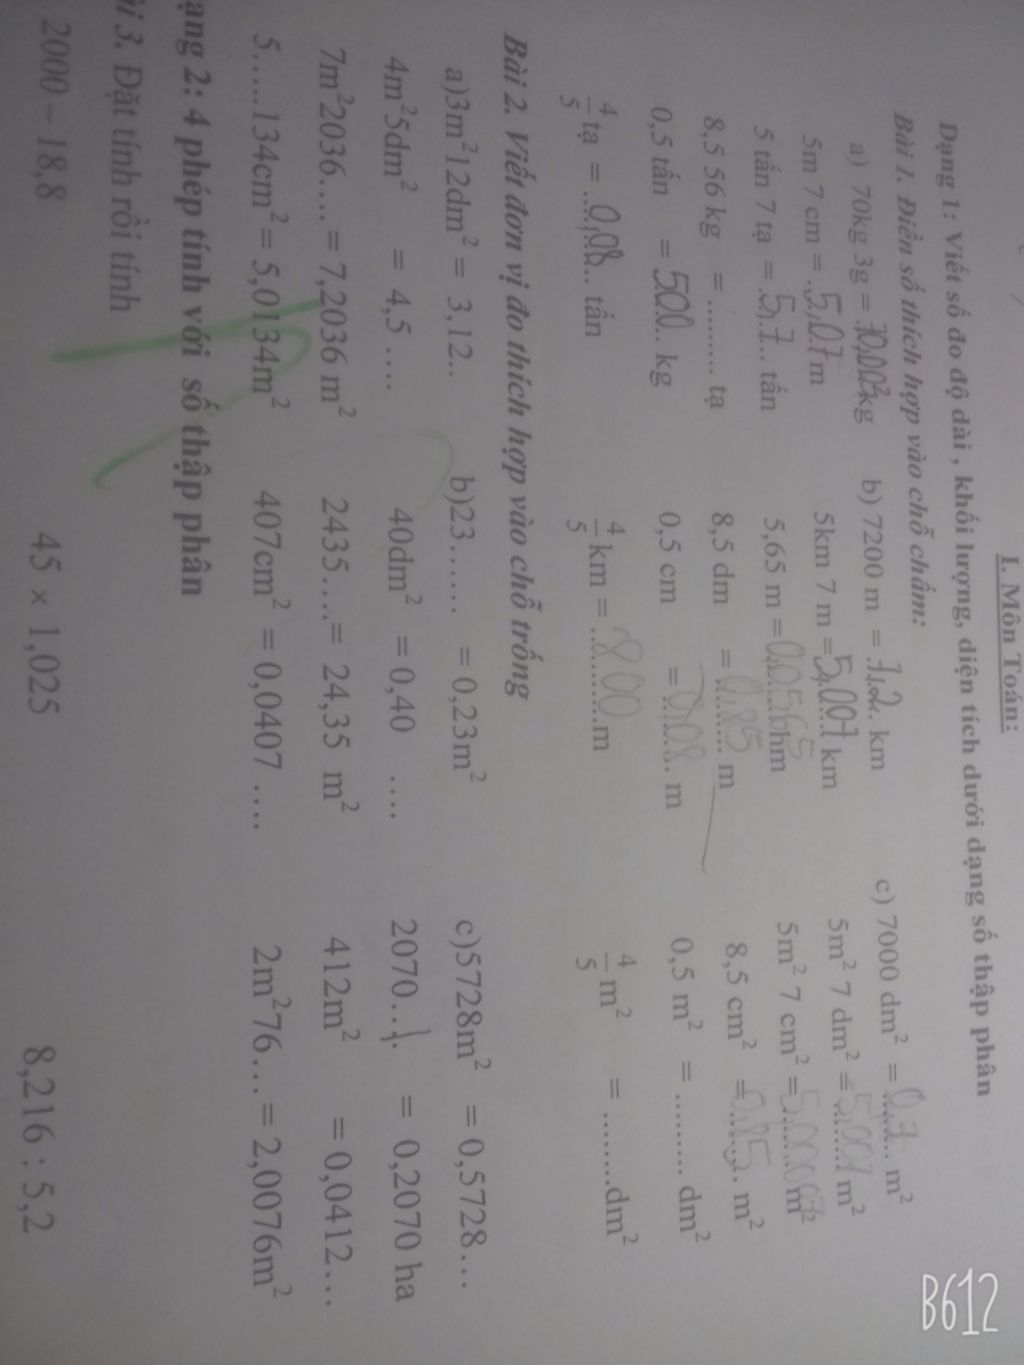 I. Môn Toán:
Dạng 1: Viết số đo độ dài , khối lượng, diện tích dưới dạng số thập phân
Bài 1. Điền số thích hợp vào chỗ chấm:
a) 70kg 3g = kg b) 7200 m = 7,2 km c) 7000 dm² = 0,7 m²
5m 7 cm = 5,07 m 5km 7 m = 5,007 km 5m² 7 dm² = 5,007 m²
5 tấn 7 tạ = 5,7 tấn 5,65 m = 0,0565 hm 5m² 7 cm² = 5,0007 m²
8,5 56 kg = ......... tạ 8,5 dm = 0,85 m 8,5 cm² = 0,85 m²
0,5 tấn = 500 kg 0,5 cm = 0,08 m 0,5 m² = ......... dm²
4/5 tạ = 0,08 tấn 4/5 km = 800 m 4/5 m² = ........dm²
Bài 2. Viết đơn vị đo thích hợp vào chỗ trống
a)3m²12dm² = 3,12.. b)23...... = 0,23m² c)5728m² = 0,5728...
4m²5dm² = 4,5 .... 40dm² = 0,40 .... 2070.... = 0,2070 ha
7m²2036.... = 7,2036 m² 2435.... = 24,35 m² 412m² = 0,0412...
5.....134cm² = 5,0134m² 407cm² = 0,0407 .... 2m²76... = 2,0076m²
ạng 2: 4 phép tính với số thập phân
i 3. Đặt tính rồi tính
2000 – 18,8 45 × 1,025 8,216 : 5,2
B612